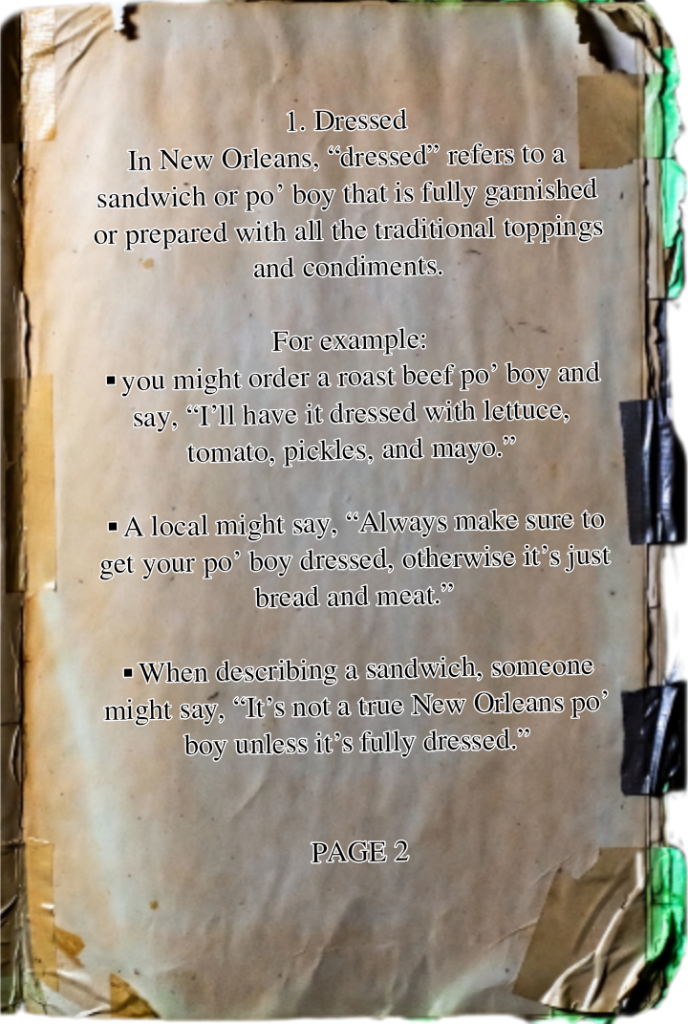 1. Dressed
In New Orleans, “dressed” refers to a
sandwich or po’ boy that is fully garnished
or prepared with all the traditional toppings
and condiments.
For example:
▪ you might order a roast beef po’ boy and
say, “I’ll have it dressed with lettuce,
tomato, pickles, and mayo.”
▪ A local might say, “Always make sure to
get your po’ boy dressed, otherwise it’s just
bread and meat.”
▪ When describing a sandwich, someone
might say, “It’s not a true New Orleans po’
boy unless it’s fully dressed.”
PAGE 2